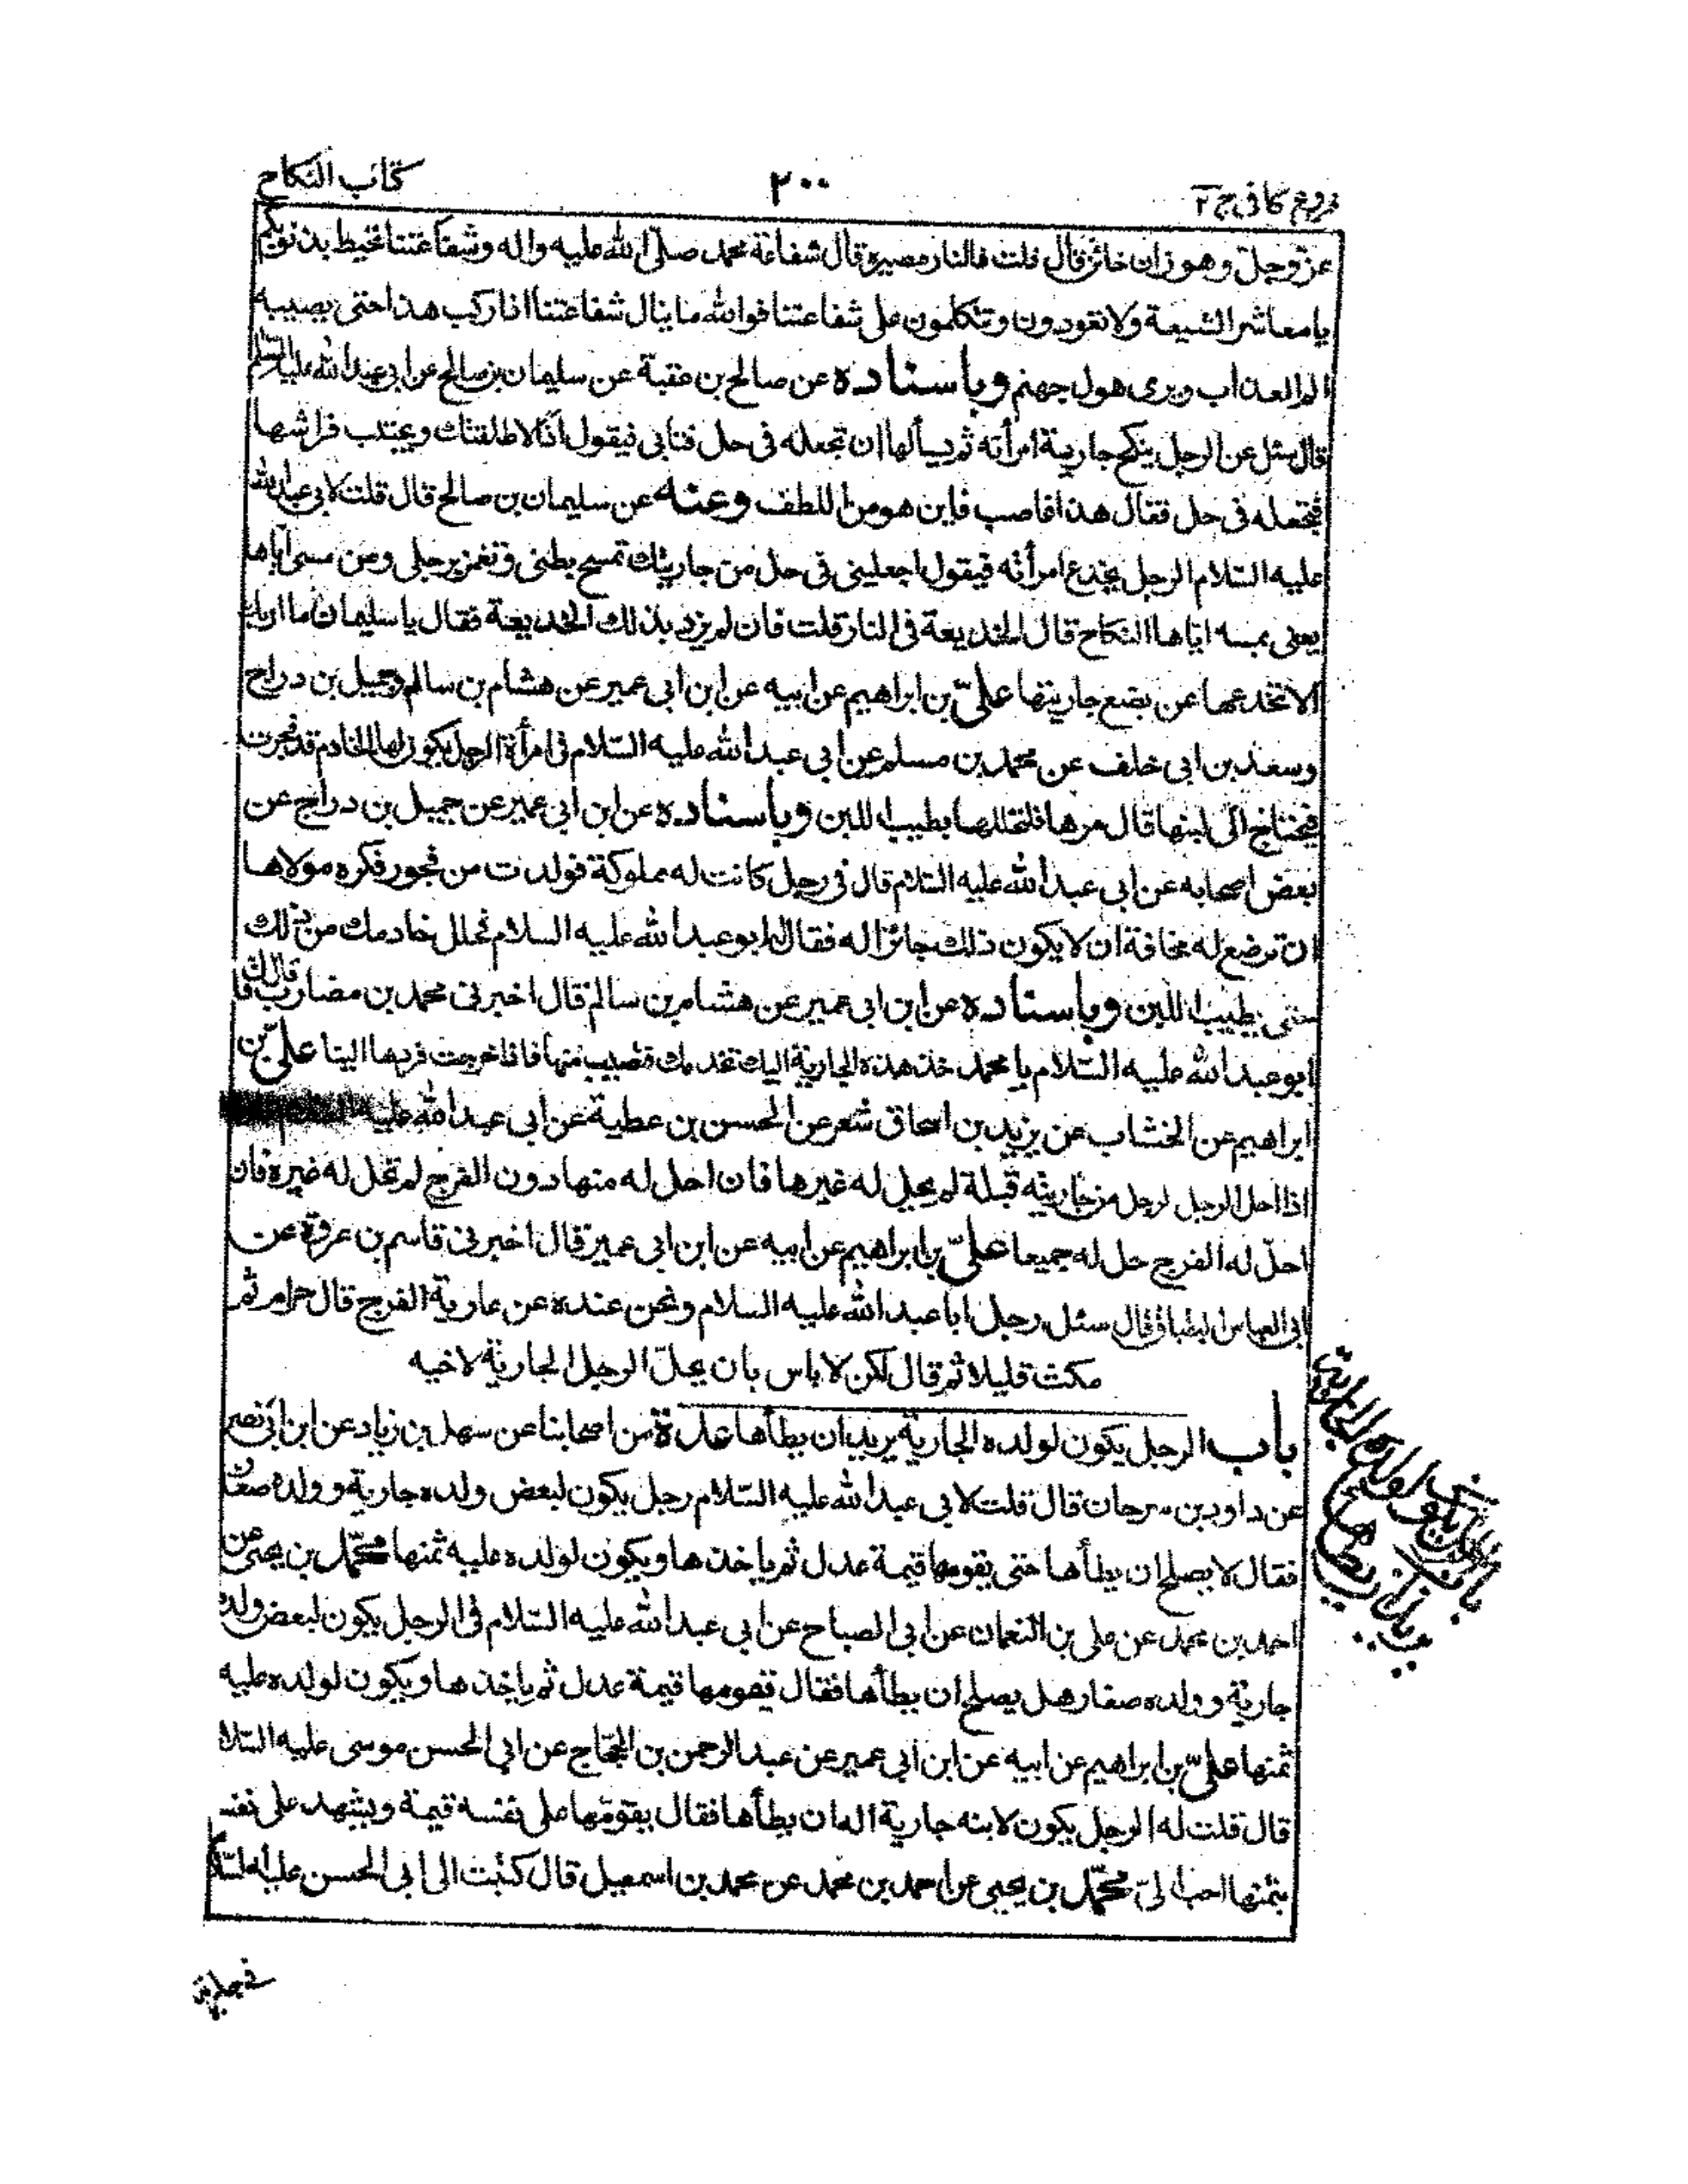 فروع كافى ج ٢
٢٠٠
كتاب النكاح
عزّ وجلّ وهو زان خائن قال قلت فالنار مصيره قال شفاعة محمد صلّى الله عليه واله وشفاعتنا تحيط بذنوبكم
يا معاشر الشيعة ولا تعودون وتتكلمون على شفاعتنا فوالله ما ينال شفاعتنا اذا ركب هذا حتى يصيبه
الم العذاب ويرى هول جهنم وباسناده عن صالح بن عقبة عن سليمان بن صالح عن ابى عبدالله عليه السّلم
قال سئل عن الرجل ينكح جارية امرأته ثم يسألها ان تجعله فى حل فتابى فيقول اذًا لاطلقنك ويجتنب فراشها
فتجعله فى حل فقال هذا غاصب فاين هو من اللطف وعنه عن سليمان بن صالح قال قلت لابى عبدالله
عليه السّلام الرجل يخدع امرأته فيقول اجعلينى فى حل من جاريتك تمسح بطنى وتغمز رجلى ومن مسى اياها
يعنى بمسه اياها النكاح قال الخديعة فى النار قلت فان لم يرد بذلك الخديعة فقال يا سليمان ما اراك
الا تخدعها عن بضع جاريتها علىّ بن ابراهيم عن ابيه عن ابن ابى عمير عن هشام بن سالم وجميل بن دراج
وسعد بن ابى خلف عن محمد بن مسلم عن ابى عبدالله عليه السّلام فى امرأة الرجل يكون لها الخادم قد فجرت
فيحتاج الى لبنها قال مرها فلتحللها يطيب اللبن وباسناده عن ابن ابى عمير عن جميل بن دراج عن
بعض اصحابه عن ابى عبدالله عليه السّلام قال فى رجل كانت له مملوكة فولدت من فجور فكره مولاها
ان ترضع له مخافة ان لا يكون ذلك جائزا له فقال ابو عبدالله عليه السلام تحلل خادمك من ذلك
حتى يطيب اللبن وباسناده عن ابن ابى عمير عن هشام بن سالم قال اخبرنى محمد بن مضارب قال قال لى
ابو عبدالله عليه السّلام يا محمد خذ هذه الجارية اليك تخدمك وتصيب منها فاذا خرجت فردها الينا علىّ بن
ابراهيم عن الخشاب عن يزيد بن اسحاق شعر عن الحسن بن عطية عن ابى عبدالله عليه
اذا احل الرجل لرجل من جاريته قبلة لم يحل له غيرها فان احل له منها دون الفرج لم تحل له غيره فان
احلّ له الفرج حل له جميعا علىّ بن ابراهيم عن ابيه عن ابن ابى عمير قال اخبرنى قاسم بن عروة عن
ابى العباس البقباق قال سئل رجل ابا عبدالله عليه السلام ونحن عنده عن عارية الفرج قال حرام ثم
مكث قليلا ثم قال لكن لا باس بان يحلّ الرجل الجارية لاخيه
باب الرجل يكون لولده الجارية يريد ان يطأها عدة من اصحابنا عن سهل بن زياد عن ابن ابى نصر
عن داود بن سرحان قال قلت لابى عبدالله عليه السّلام رجل يكون لبعض ولده جارية وولده صغار
فقال لا يصلح ان يطأها حتى يقومها قيمة عدل ثم ياخذها ويكون لولده عليه ثمنها محمّد بن يحيى عن
احمد بن محمد عن على بن النعمان عن ابى الصباح عن ابى عبدالله عليه السّلام فى الرجل يكون لبعض ولده
جارية وولده صغار هل يصلح ان يطأها فقال تقومها قيمة عدل ثم ياخذها ويكون لولده عليه
ثمنها علىّ بن ابراهيم عن ابيه عن ابن ابى عمير عن عبدالرحمن بن الحجّاج عن ابى الحسن موسى عليه السّلا
قال قلت له الرجل يكون لابنه جارية اله ان يطأها فقال يقوّمها على نفسه قيمة ويشهد على نفسه
بثمنها احبّ الىّ محمّد بن يحيى عن احمد بن محمد عن محمد بن اسمعيل قال كتبت الى ابى الحسن عليه السّلم